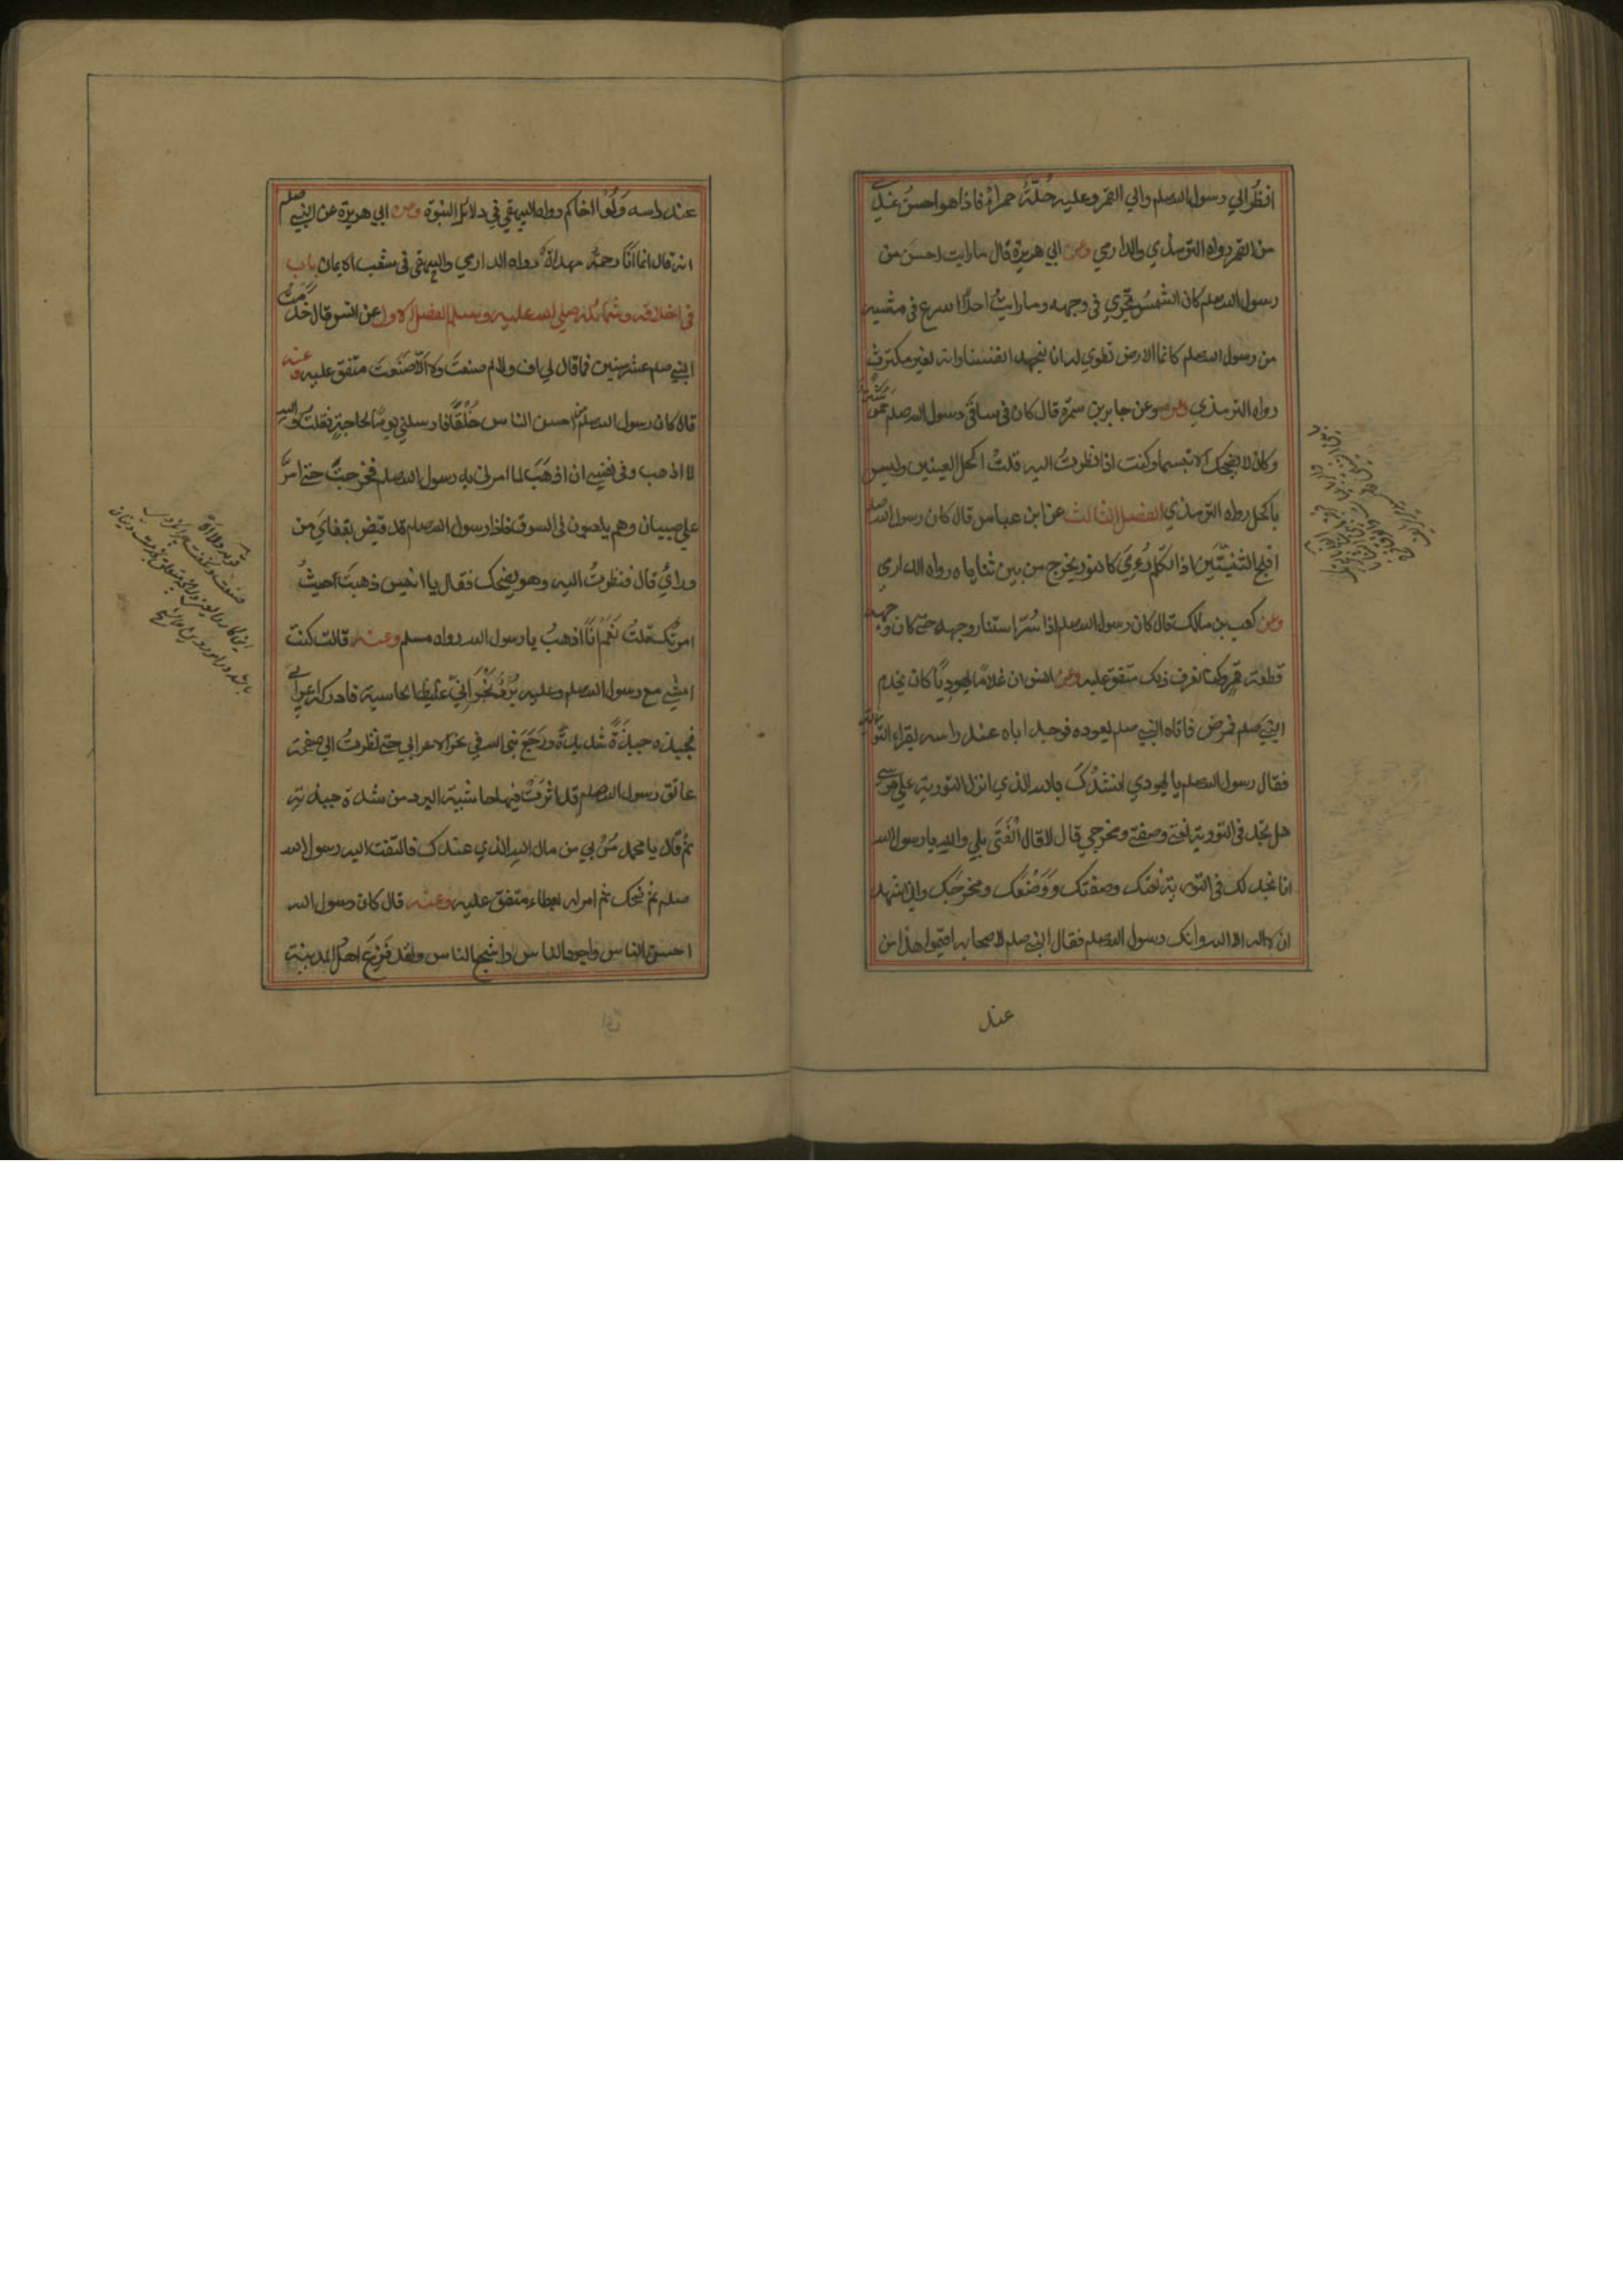 انظر الي رسول الله صلم والي القمر وعليه حُلّةٌ حمراءُ فاذا هو احسنُ عندي
من القمر رواه الترمذي والدارمي وعن ابي هريرة قال ما رايت احسن من
رسول الله صلم كان الشمسُ تجري في وجهه وما رايتُ احدًا اسرع في مشيه
من رسول الله صلم كانما الارض تطوي له انا لنجهد انفسنا وانه لغير مكترث
رواه الترمذي وعن جابر بن سمرة قال كان في ساقَي رسول الله صلم حموشة
وكان لا يضحك الا تبسما وكنت اذا نظرتُ اليه قلتُ اكحل العينين وليس
باكحل رواه الترمذي الفصل الثالث عن ابن عباس قال كان رسول الله صلم
افلج الثنيتَين اذا تكلّم رُءِيَ كالنور يخرج من بين ثناياه رواه الدارمي
وعن كعب بن مالك قال كان رسول الله صلم اذا سُرّ استنار وجهه حتي كان وجهه
قطعة قمر وكنا نعرف ذلك متفق عليه وعن انس ان غلامًا يهوديًا كان يخدم
النبي صلم فمرض فاتاه النبي صلم يعوده فوجد اباه عند راسه يقراء التورية
فقال رسول الله صلم يا يهودي انشدُك بالله الذي انزل التورية علي موسي
هل تجد في التورية نعتي وصفتي ومخرجي قال لا قال الفَتَى بلي والله يا رسول الله
انا نجد لك في التورية نعتك وصفتك ومخرجك واني اشهد
ان لا اله الا الله وانك رسول الله صلم فقال النبي صلم لاصحابه اقيموا هذا من
عند
عند راسه ولُوا اخاكم رواه البيهقي في دلائل النبوة وعن ابي هريرة عن النبي صلم
انه قال انما انا رحمةٌ مهداةٌ رواه الدارمي والبيهقي في شعب الايمان باب
في اخلاقه وشمائله صلي الله عليه وسلم الفصل الاول عن انس قال خدمتُ
النبي صلم عشر سنين فما قال لي اف ولا لم صنعتَ ولا الّا صَنَعتَ متفق عليه وعنه
قال كان رسول الله صلم من احسن الناس خُلْقًا فارسلني يومًا لحاجةٍ فقلتُ والله
لا اذهب وفي نفسي ان اذهَبَ لما امرني به رسول الله صلم فخرجتُ حتي امرَّ
علي صبيان وهم يلعبون في السوق فاذا رسول الله صلم قد قبض بقفايَ من
ورائي قال فنظرتُ اليه وهو يضحك فقال يا انيس ذهبتَ حيثُ
امرتُك قلتُ نَعَم انا اذهبُ يا رسول الله رواه مسلم وعنه قالت كنت
امشي مع رسول الله صلم وعليه بُرْدٌ نَجْرانيٌ غليظ الحاشية فادركه اعرابي
فجبذه جبذَةً شديدةً ورَجَعَ نبي الله في نحر الاعرابي حتي نظرتُ الي صفحة
عاتق رسول الله صلم قد اثرَتْ فيها حاشية البرد من شدة جبذته
ثم قال يا محمد مُرْ لي من مال الله الذي عندك فالتفت اليه رسول الله
صلم ثم ضحك ثم امر له بعطاء متفق عليه وعنه قال كان رسول الله
احسن الناس واجود الناس واشجع الناس ولقد فَزِعَ اهلُ المدينة